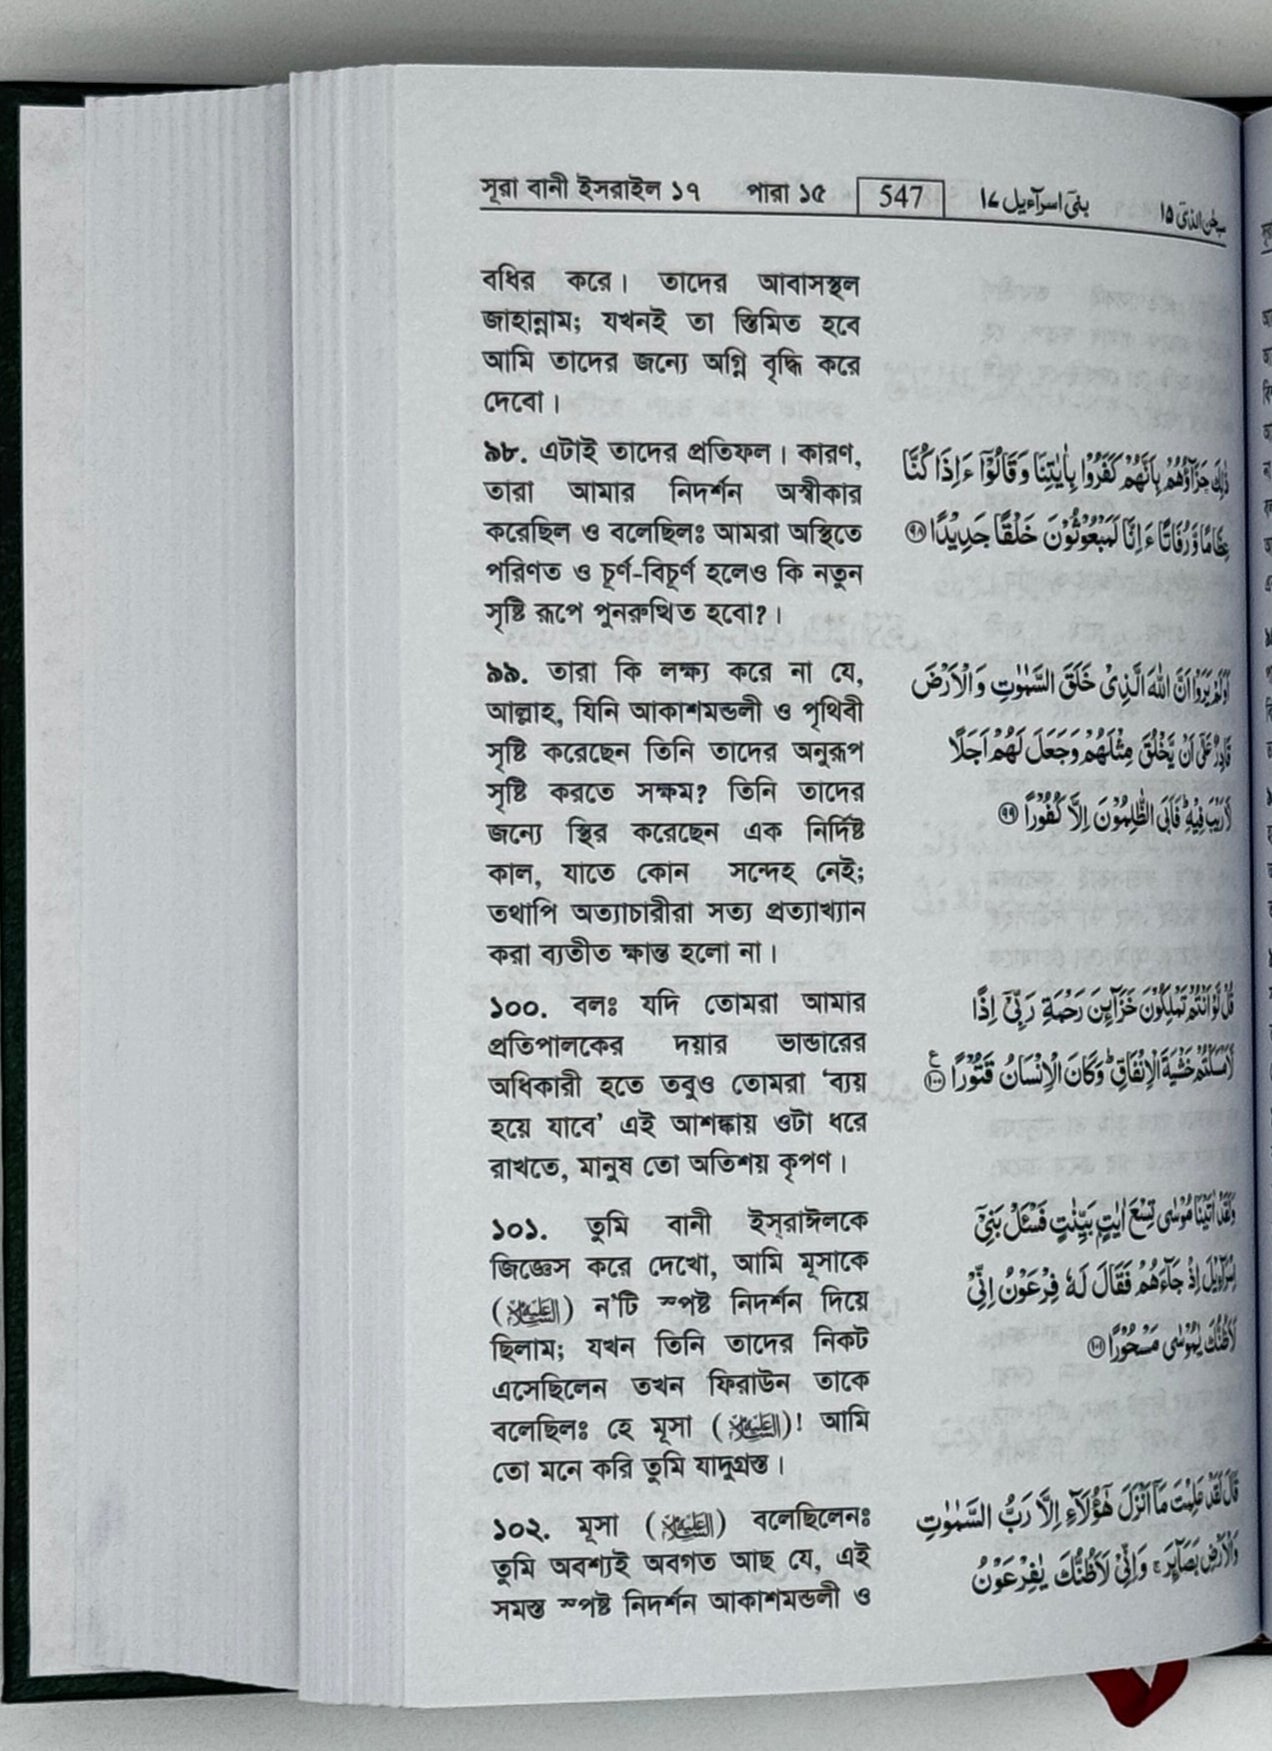 সূরা বানী ইসরাইল ১৭ পারা ১৫ 547 بنی اسرآءیل ١٧ سبحٰن الذی ١٥
বধির করে। তাদের আবাসস্থল
জাহান্নাম; যখনই তা স্তিমিত হবে
আমি তাদের জন্যে অগ্নি বৃদ্ধি করে
দেবো।
৯৮. এটাই তাদের প্রতিফল। কারণ,
তারা আমার নিদর্শন অস্বীকার
করেছিল ও বলেছিলঃ আমরা অস্থিতে
পরিণত ও চূর্ণ-বিচূর্ণ হলেও কি নতুন
সৃষ্টি রূপে পুনরুত্থিত হবো?।
ذٰلِكَ جَزَآؤُهُمْ بِاَنَّهُمْ كَفَرُوْا بِاٰيٰتِنَا وَقَالُوْٓا ءَاِذَا كُنَّا
عِظَامًا وَّرُفَاتًا ءَاِنَّا لَمَبْعُوْثُوْنَ خَلْقًا جَدِيْدًا ٩٨
৯৯. তারা কি লক্ষ্য করে না যে,
আল্লাহ, যিনি আকাশমন্ডলী ও পৃথিবী
সৃষ্টি করেছেন তিনি তাদের অনুরূপ
সৃষ্টি করতে সক্ষম? তিনি তাদের
জন্যে স্থির করেছেন এক নির্দিষ্ট
কাল, যাতে কোন সন্দেহ নেই;
তথাপি অত্যাচারীরা সত্য প্রত্যাখ্যান
করা ব্যতীত ক্ষান্ত হলো না।
اَوَلَمْ يَرَوْا اَنَّ اللّٰهَ الَّذِىْ خَلَقَ السَّمٰوٰتِ وَالْاَرْضَ
قَادِرٌ عَلٰٓى اَنْ يَّخْلُقَ مِثْلَهُمْ وَجَعَلَ لَهُمْ اَجَلًا
لَّا رَيْبَ فِيْهِ ؕ فَاَبَى الظّٰلِمُوْنَ اِلَّا كُفُوْرًا ٩٩
১০০. বলঃ যদি তোমরা আমার
প্রতিপালকের দয়ার ভান্ডারের
অধিকারী হতে তবুও তোমরা ‘ব্যয়
হয়ে যাবে’ এই আশঙ্কায় ওটা ধরে
রাখতে, মানুষ তো অতিশয় কৃপণ।
قُلْ لَّوْ اَنْتُمْ تَمْلِكُوْنَ خَزَآئِنَ رَحْمَةِ رَبِّيْٓ اِذًا
لَّاَمْسَكْتُمْ خَشْيَةَ الْاِنْفَاقِ ؕ وَكَانَ الْاِنْسَانُ قَتُوْرًا ١٠٠ ع
১০১. তুমি বানী ইস্‌রাঈলকে
জিজ্ঞেস করে দেখো, আমি মূসাকে
(عليه السلام) ন’টি স্পষ্ট নিদর্শন দিয়ে
ছিলাম; যখন তিনি তাদের নিকট
এসেছিলেন তখন ফিরাউন তাকে
বলেছিলঃ হে মূসা (عليه السلام)! আমি
তো মনে করি তুমি যাদুগ্রস্ত।
وَلَقَدْ اٰتَيْنَا مُوْسٰى تِسْعَ اٰيٰتٍۭ بَيِّنٰتٍ فَسْـَٔلْ بَنِيْٓ
اِسْرَآءِيْلَ اِذْ جَآءَهُمْ فَقَالَ لَهٗ فِرْعَوْنُ اِنِّيْ
لَاَظُنُّكَ يٰمُوْسٰى مَسْحُوْرًا ١٠١
১০২. মূসা (عليه السلام) বলেছিলেনঃ
তুমি অবশ্যই অবগত আছ যে, এই
সমস্ত স্পষ্ট নিদর্শন আকাশমন্ডলী ও
قَالَ لَقَدْ عَلِمْتَ مَآ اَنْزَلَ هٰٓؤُلَآءِ اِلَّا رَبُّ السَّمٰوٰتِ
وَالْاَرْضِ بَصَآئِرَ ۚ وَاِنِّيْ لَاَظُنُّكَ يٰفِرْعَوْنُ